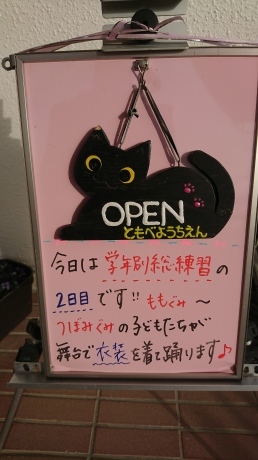 OPEN
ともべようちえん
今日は学年別総練習の
2日目です!! ももぐみ～
つぼみぐみの子どもたちが
舞台で衣装を着て踊ります♪